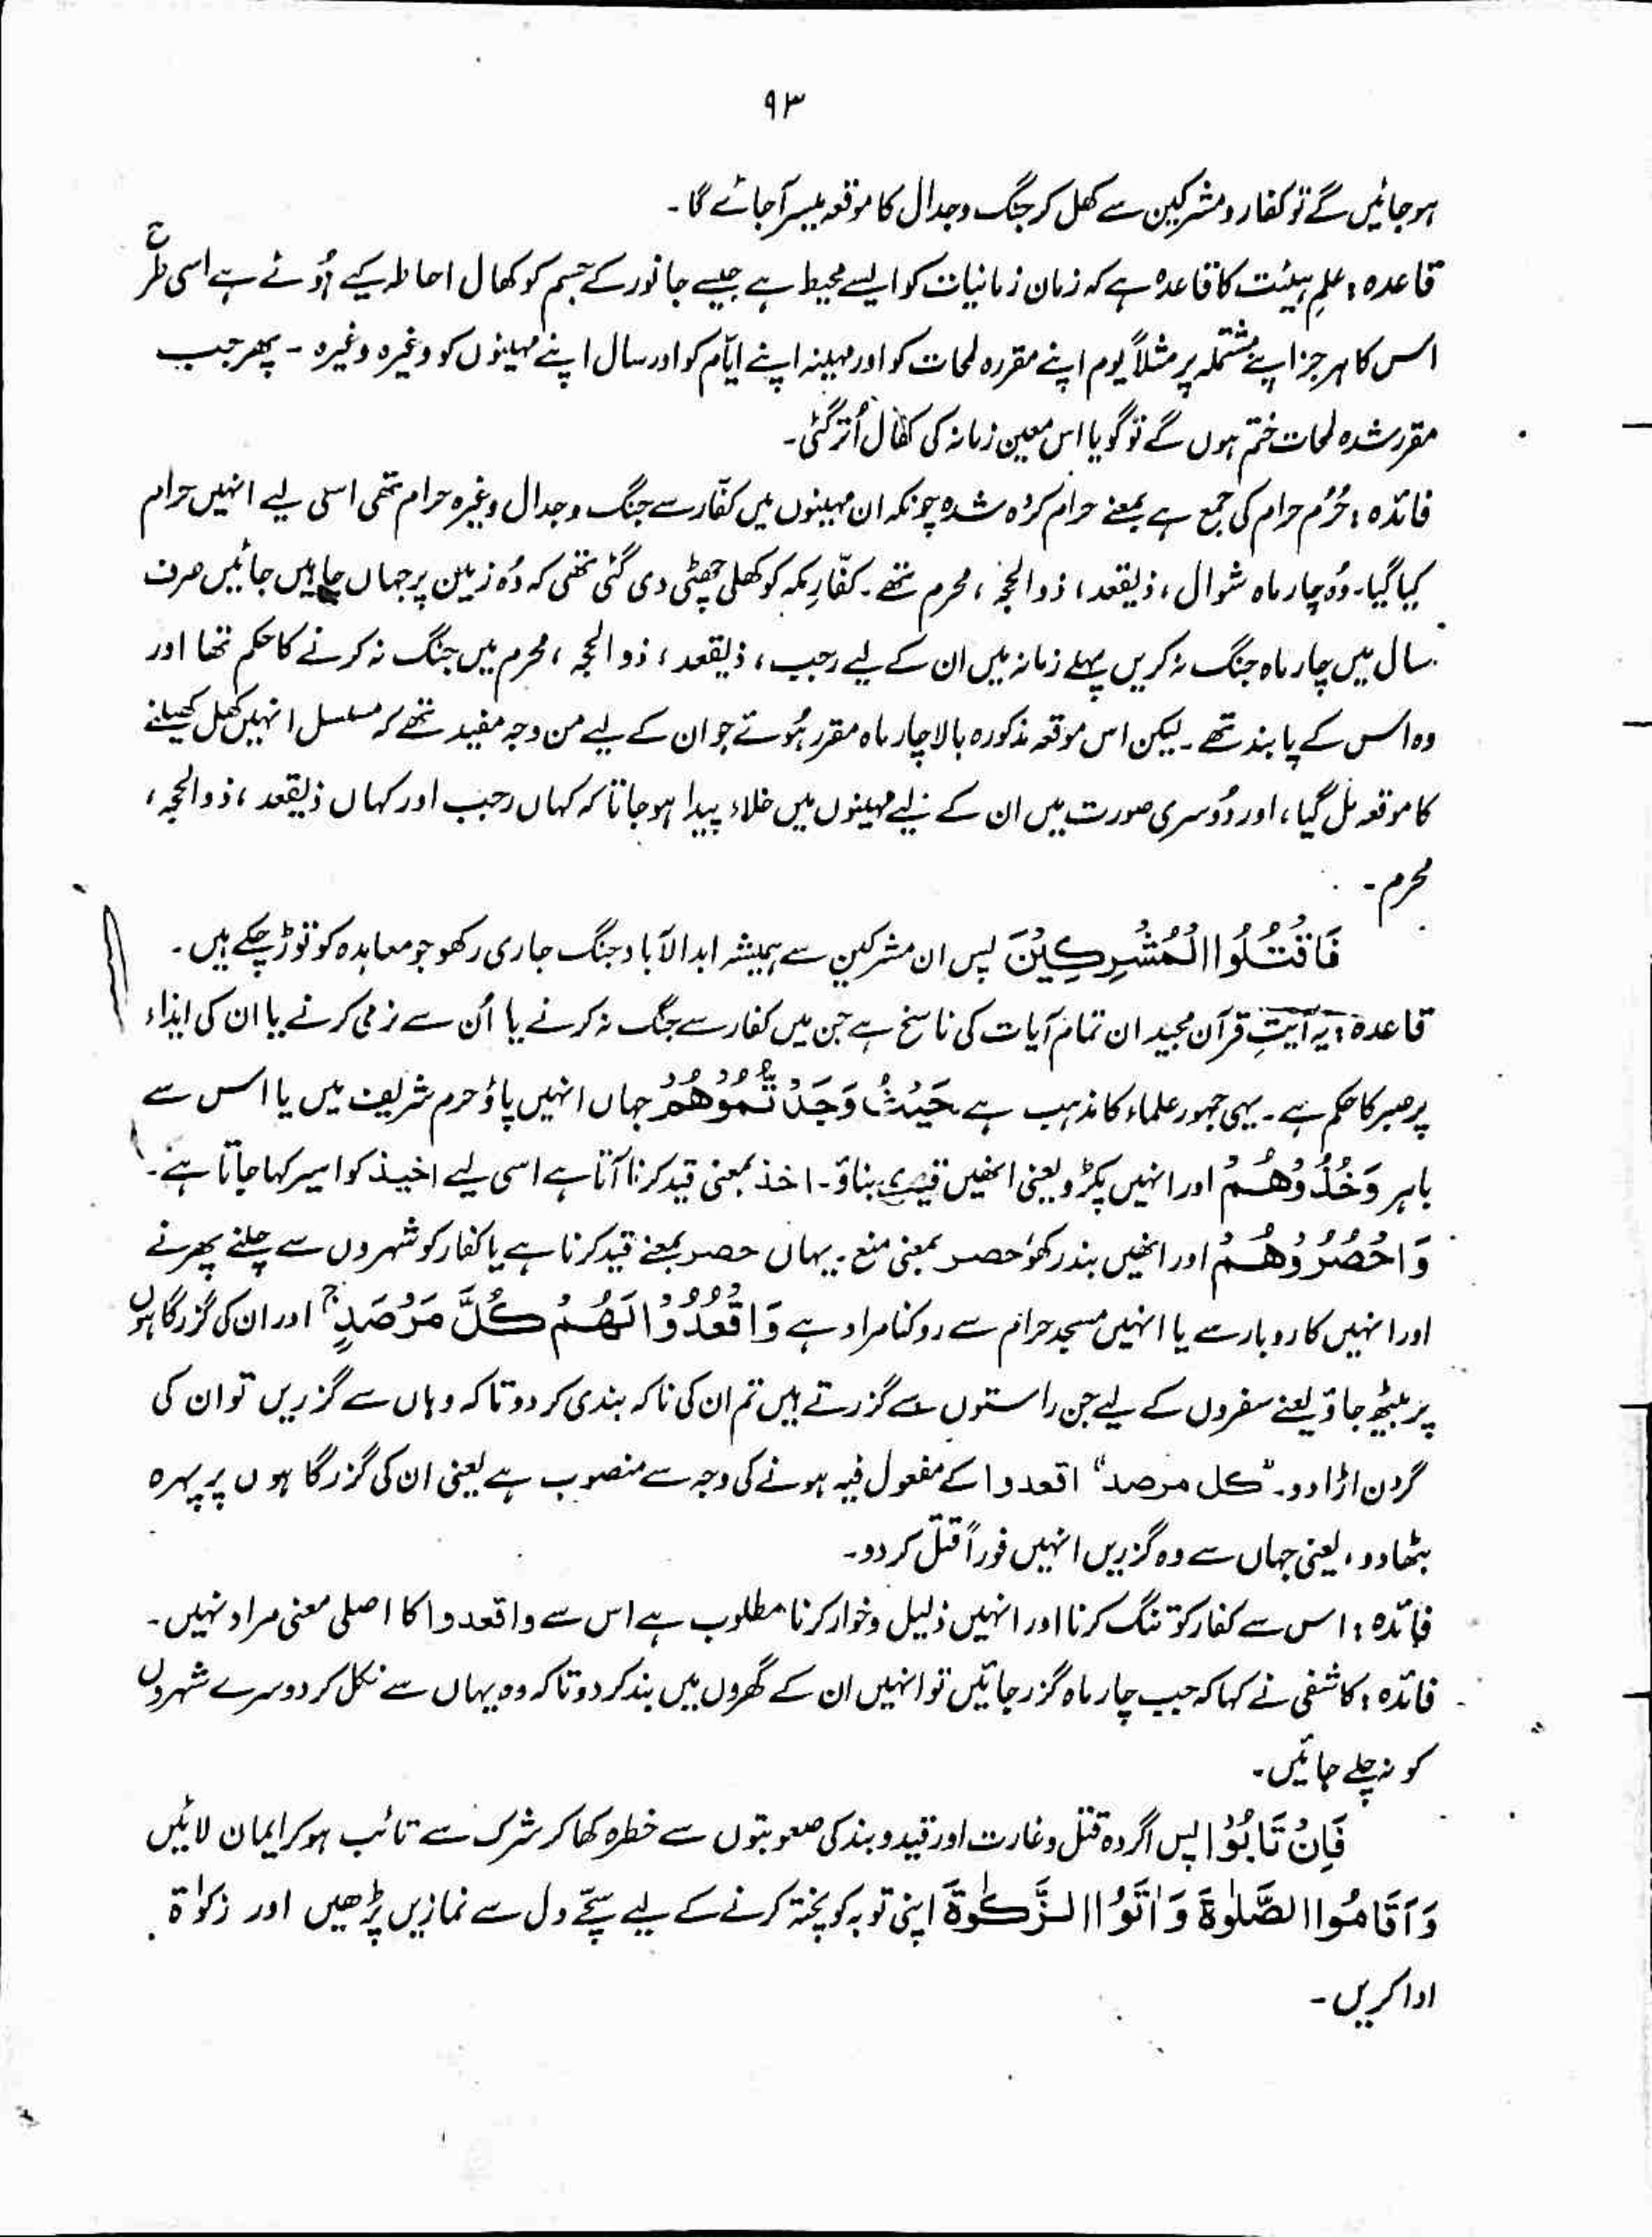 ۹۳
ہوجائیں گے تو کفار و مشرکین سے کھل کر جنگ و جدال کا موقعہ میسر آجائے گا۔
قاعدہ : علمِ ہیئت کا قاعدہ ہے کہ زمان زمانیات کو ایسے محیط ہے جیسے جانور کے جسم کو کھال احاطہ کیے ہُوئے ہے اسی طرح
اس کا ہر جز اپنے مشتملہ پر مثلاً یوم اپنے مقررہ لمحات کو اور مہینہ اپنے ایّام کو اور سال اپنے مہینوں کو وغیرہ وغیرہ - پھر جب
مقرر شدہ لمحات ختم ہوں گے تو گویا اس معین زمانہ کی کھال اُتر گئی۔
فائدہ : حُرُم حرام کی جمع ہے بمعنے حرام کردہ شدہ چونکہ ان مہینوں میں کفّار سے جنگ و جدال وغیرہ حرام تھی اسی لیے انہیں حرام
کیا گیا۔ وُہ چار ماہ شوال ، ذیقعد ، ذوالحجہ ، محرم تھے۔ کفّارِ مکہ کو کھلی چھٹی دی گئی تھی کہ وُہ زمین پر جہاں چاہیں جائیں صرف
سال میں چار ماہ جنگ نہ کریں پہلے زمانہ میں ان کے لیے رجب ، ذیقعد ، ذوالحجہ ، محرم میں جنگ نہ کرنے کا حکم تھا اور
وہ اس کے پابند تھے۔ لیکن اس موقعہ مذکورہ بالا چار ماہ مقرر ہُوئے جو ان کے لیے من وجہ مفید تھے کہ مسلسل انہیں کھل کھیلنے
کا موقعہ مل گیا ، اور دُوسری صورت میں ان کے لیے مہینوں میں خلاء پیدا ہوجاتا کہ کہاں رجب اور کہاں ذیقعد ، ذوالحجہ ،
محرم -
فَاقْتُلُوا الْمُشْرِكِيْنَ پس ان مشرکین سے ہمیشہ ابدالآباد جنگ جاری رکھو جو معاہدہ کو توڑ چکے ہیں۔
قاعدہ : یہ آیتِ قرآن مجید ان تمام آیات کی ناسخ ہے جن میں کفار سے جنگ نہ کرنے یا اُن سے نرمی کرنے یا ان کی ایذاء
پر صبر کا حکم ہے۔ یہی جمہور علماء کا مذہب ہے حَيْثُ وَجَدْتُّمُوْهُمْ جہاں انہیں پاؤ حرم شریف میں یا اس سے
باہر وَخُذُوْهُمْ اور انہیں پکڑو یعنی انھیں قیدی بناؤ۔ اخذ بمعنی قید کرنا آتا ہے اسی لیے اخیذ کو اسیر کہا جاتا ہے۔
وَاحْصُرُوْهُمْ اور انھیں بند رکھو حصر بمعنی منع۔ یہاں حصر بمعنے قید کرنا ہے یا کفار کو شہروں سے چلنے پھرنے
اور انہیں کاروبار سے یا انہیں مسجد حرام سے روکنا مراد ہے وَاقْعُدُوْا لَهُمْ كُلَّ مَرْصَدٍ ج اور ان کی گزرگاہوں
پر بیٹھ جاؤ یعنے سفروں کے لیے جن راستوں سے گزرتے ہیں تم ان کی ناکہ بندی کردو تاکہ وہاں سے گزریں تو ان کی
گردن اڑا دو۔ "کل مرصد" اقعدوا کے مفعول فیہ ہونے کی وجہ سے منصوب ہے یعنی ان کی گزرگاہوں پر پہرہ
بٹھا دو ، یعنی جہاں سے وہ گزریں انہیں فوراً قتل کردو۔
فائدہ : اس سے کفار کو تنگ کرنا اور انہیں ذلیل و خوار کرنا مطلوب ہے اس سے واقعدوا کا اصلی معنی مراد نہیں۔
فائدہ : کاشفی نے کہا کہ جب چار ماہ گزر جائیں تو انہیں ان کے گھروں میں بند کردو تاکہ وہ یہاں سے نکل کر دوسرے شہروں
کو نہ چلے جائیں۔
فَاِنْ تَابُوْا پس اگر وہ قتل و غارت اور قید و بند کی صعوبتوں سے خطرہ کھا کر شرک سے تائب ہو کر ایمان لائیں
وَاَقَامُوا الصَّلٰوةَ وَاٰتَوُا الزَّكٰوةَ اپنی توبہ کو پختہ کرنے کے لیے سچّے دل سے نمازیں پڑھیں اور زکوٰۃ
ادا کریں -